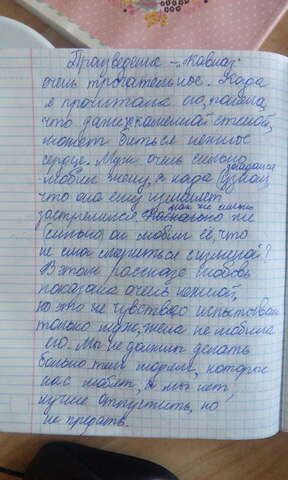 Произведение - „Кавказ"
очень трогательное. Когда
я прочитала его, поняла,
что даже за каменной стеной,
может биться нежное
сердце. Муж очень сильно
любил жену, и когда догадался
что она ему изменяет
застрелился. Как же сильно
(сильно) он любил её, что
не смог смириться с изменой?
В этом рассказе любовь
показана очень нежной,
но это же чувство испытывал
только муж, жена не любила
его. Мы не должны делать
больно тем людям, которые
нас любят, а мы нет,
лучше отпустить, но
не предать.